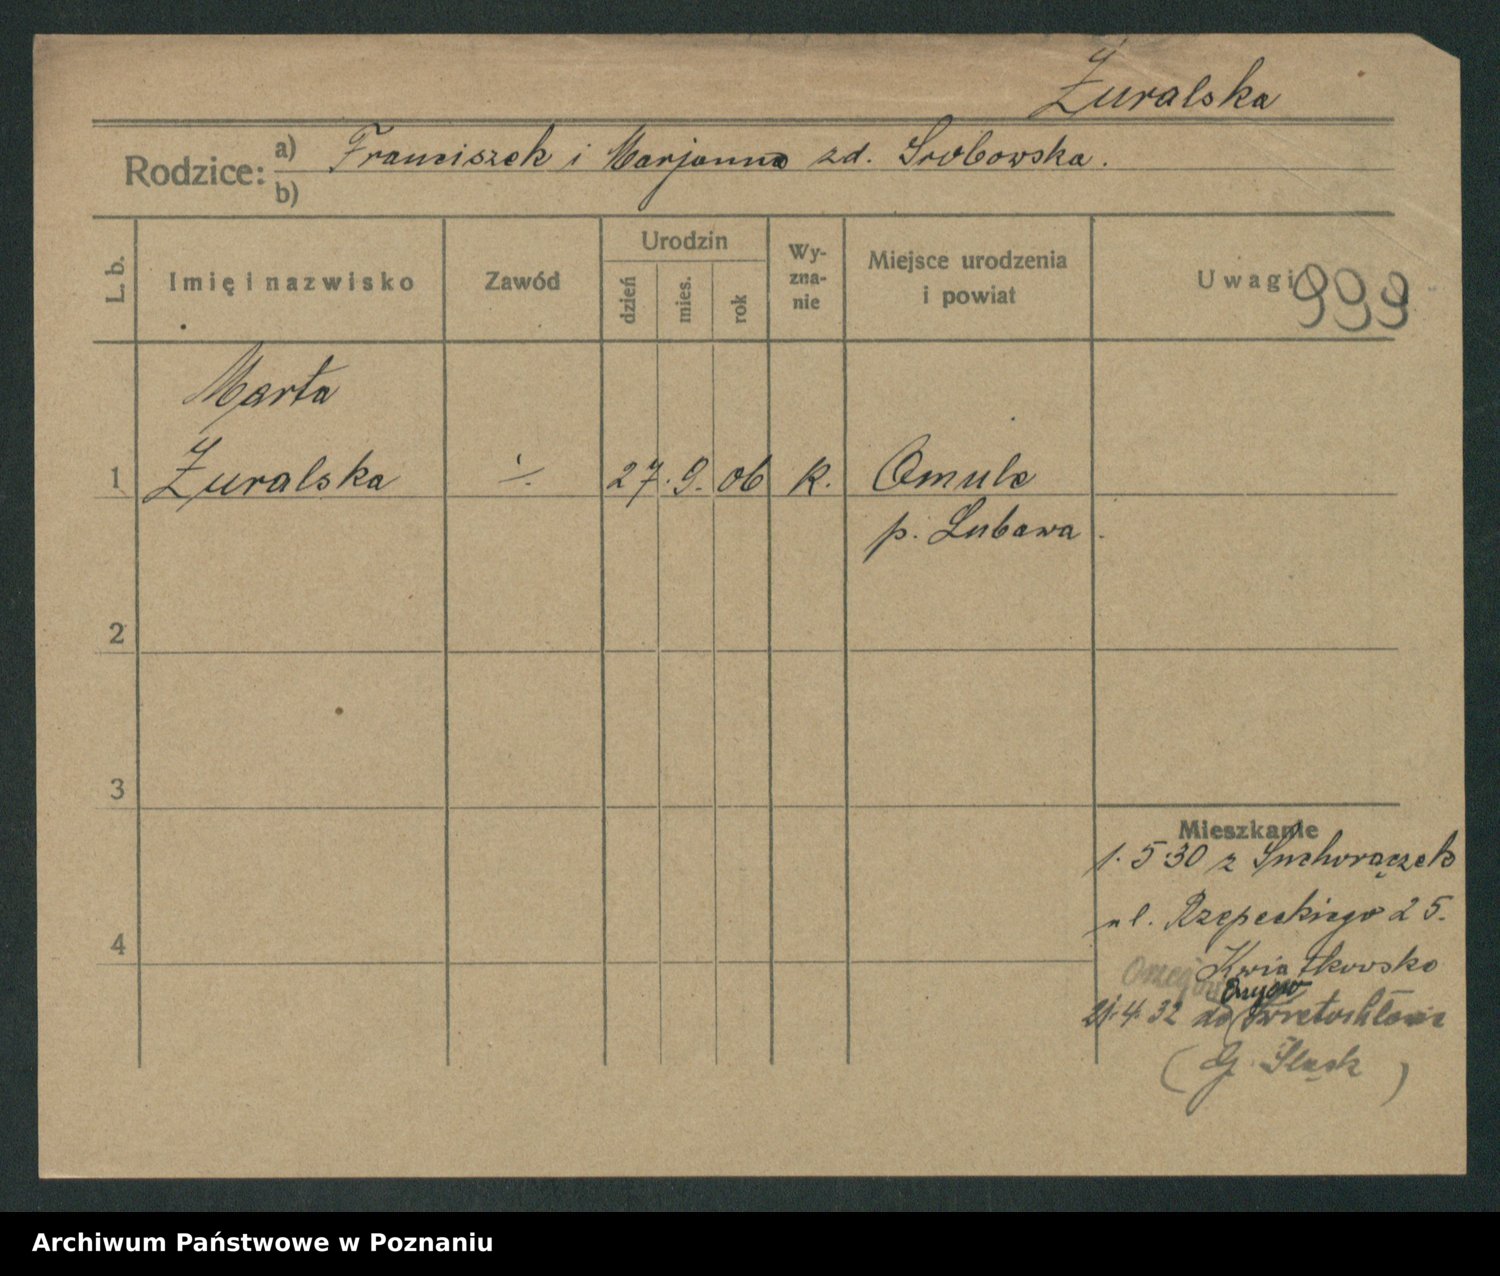 Żuralska
Rodzice: a) Franciszek i Marjanna zd. Srobowska.
b)
L. b. Imię i nazwisko Zawód Urodzin dzień mies. rok Wy-zna-nie Miejsce urodzenia i powiat Uwagi 999
Marta
1 Żuralska ·/. 27. 9. 06 k. Omule
p. Lubawa.
2
3
Mieszkanie
1. 5 30 z Suchorączek
ul. Rzepeckiego 25.
4
Kwiatkowsko
21. 4. 32 do
(G. Śląsk)
Archiwum Państwowe w Poznaniu